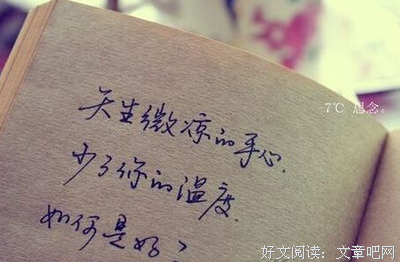 天生微凉的手心.
-7℃ 思念。
少了你的温度.
如何是好?
好文阅读：文章吧网